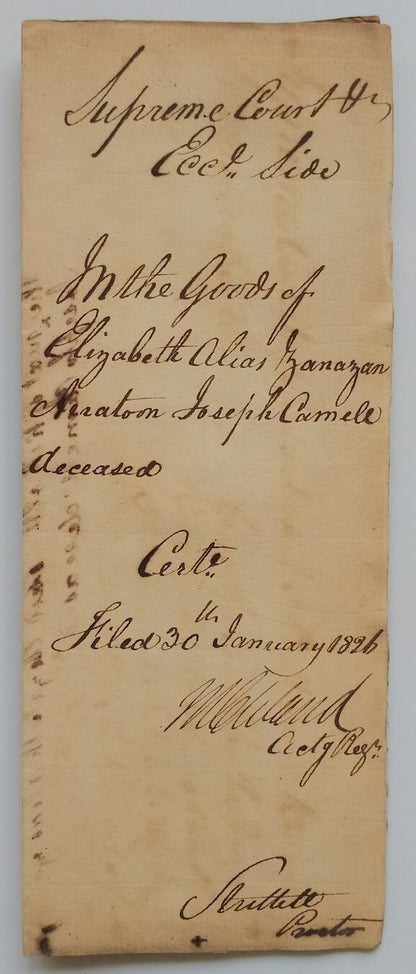 Supreme Court &c
Eccl. Side
In the Goods of
Elizabeth Alias Zanazan
Aratoon Joseph Camell
deceased
Certe.
Filed 30th January 1826
Actg Regr.
Proctor